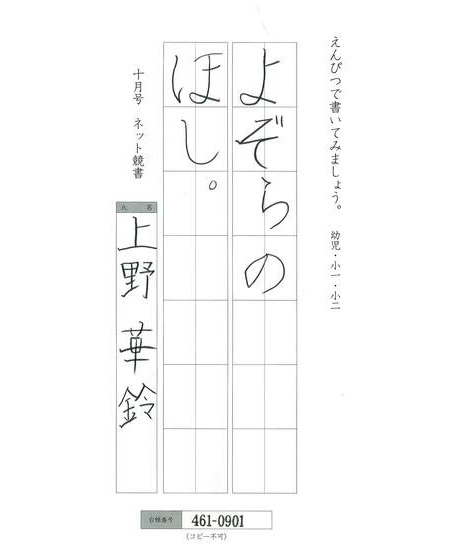 えんぴつで書いてみましょう。　幼児・小一・小二
よぞらの
ほし。
十月号　ネット競書
氏名
上野華鈴
台帳番号 461-0901
(コピー不可)